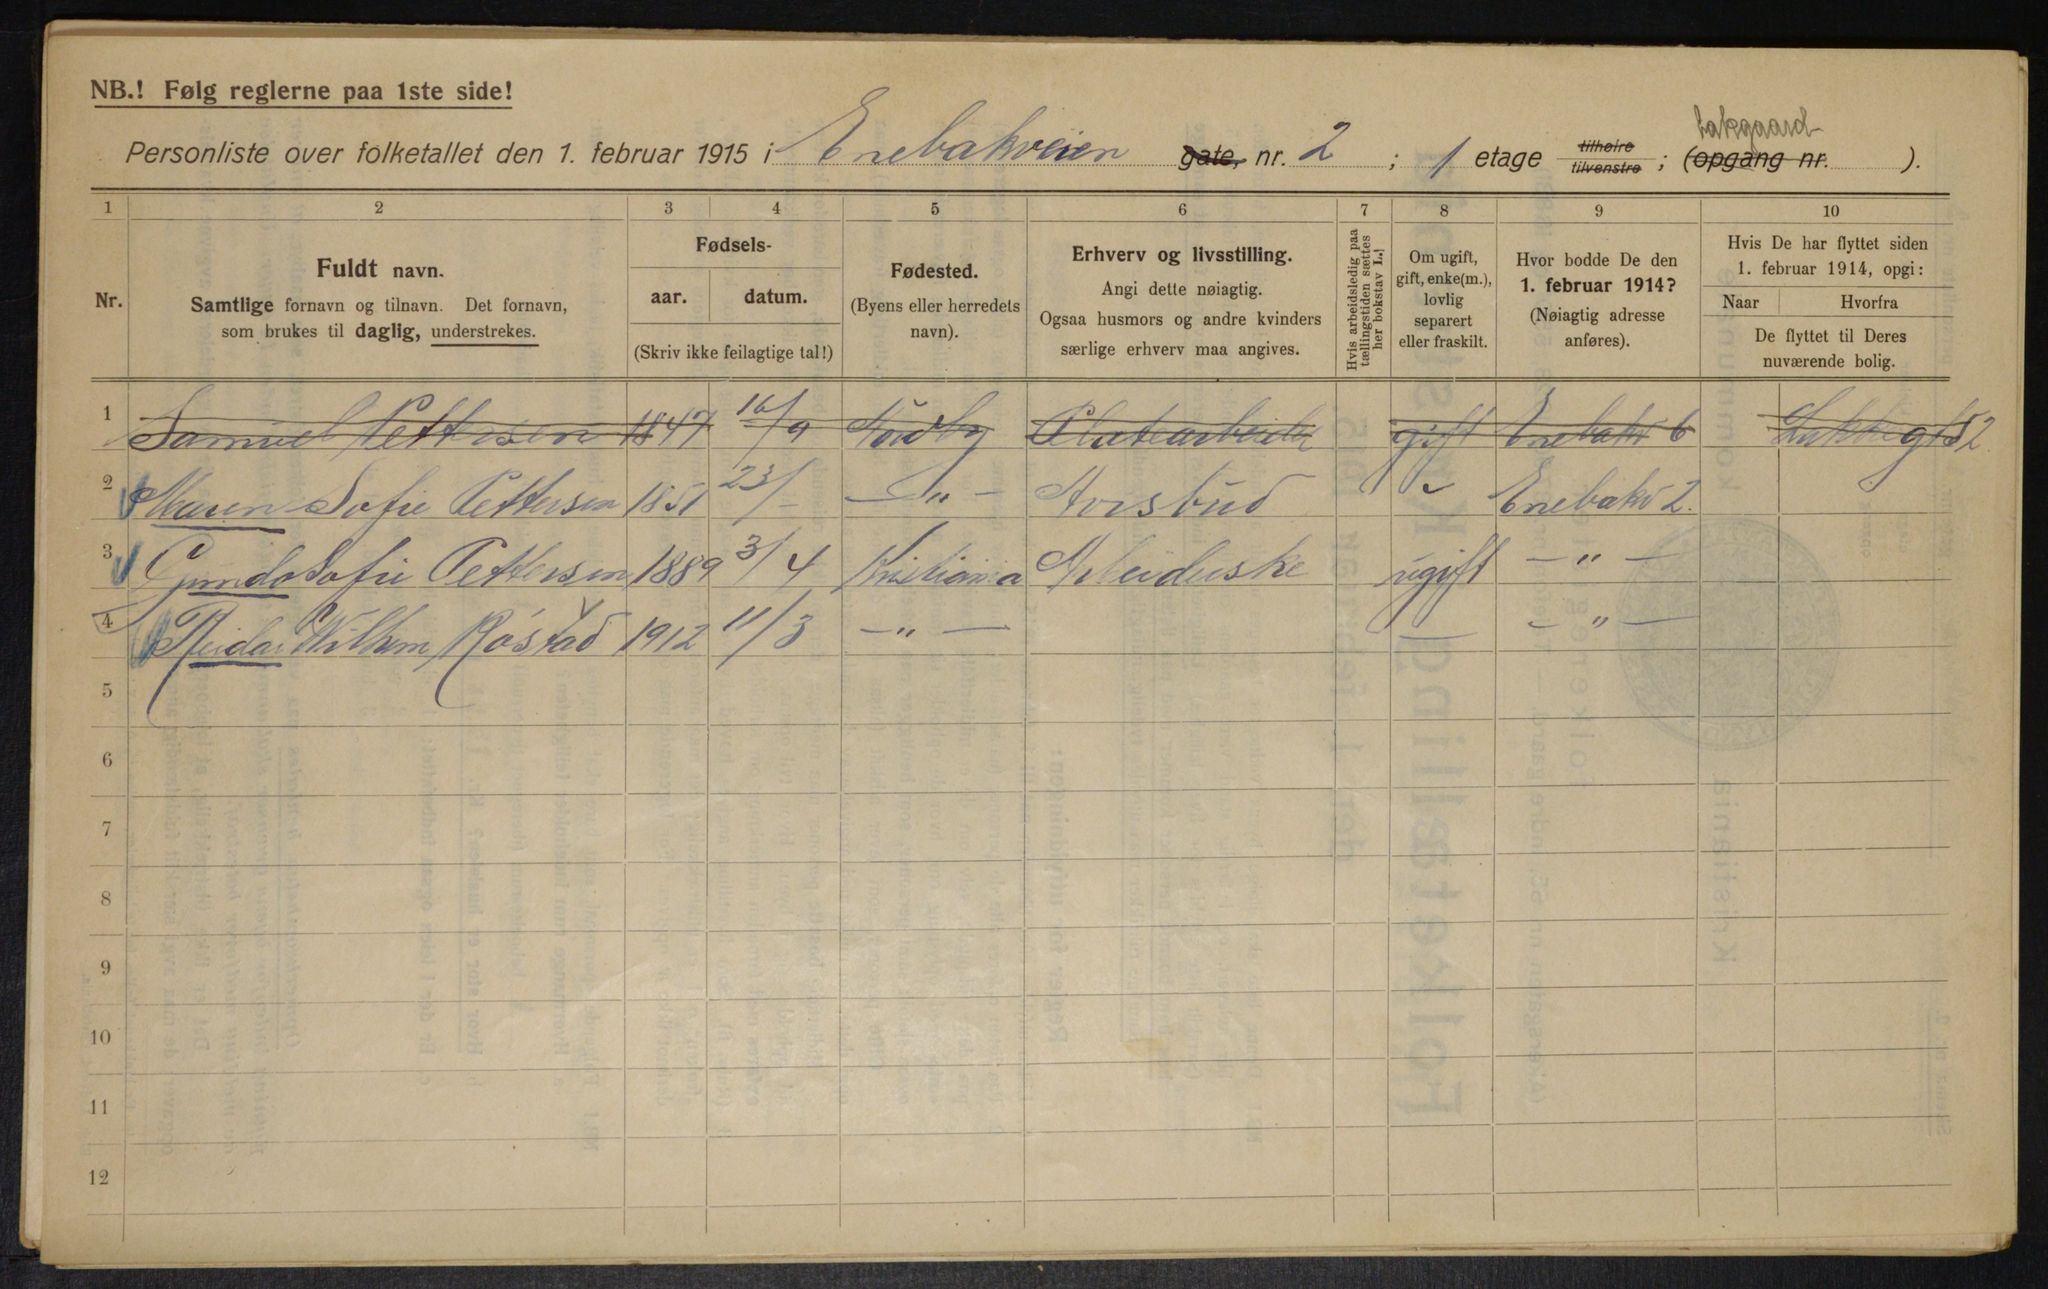 NB.! Følg reglerne paa 1ste side!
bakgaard
Personliste over folketallet den 1. februar 1915 i Enebakveien gate, nr. 2; 1 etage tilhøire tilvenstre; (opgang nr. ).
1 2 3 4 5 6 7 8 9 10
Nr.
Fuldt navn.
Samtlige fornavn og tilnavn. Det fornavn,
som brukes til daglig, understrekes.
Fødsels-
aar. datum.
(Skriv ikke feilagtige tal!)
Fødested.
(Byens eller herredets
navn).
Erhverv og livsstilling.
Angi dette nøiagtig.
Ogsaa husmors og andre kvinders
særlige erhverv maa angives.
Hvis arbeidsledig paa
tællingstiden sættes
her bokstav L.!
Om ugift,
gift, enke(m.),
lovlig
separert
eller fraskilt.
Hvor bodde De den
1. februar 1914?
(Nøiagtig adresse
anføres).
Hvis De har flyttet siden
1. februar 1914, opgi:
Naar Hvorfra
De flyttet til Deres
nuværende bolig.
1 Samuel Pettersen 1847 16/9 Nordby gift Enebakv 6 52
2 Maren Sofie Pettersen 1851 23/ — " — Avisbud " Enebakv 2.
3 Gunda Sofie Pettersen 1889 3/4 Kristiania Arbeiderske ugift — " —
4 Reidar Wilhem Røstad 1912 11/3 — " — — — " —
5
6
7
8
9
10
11
12